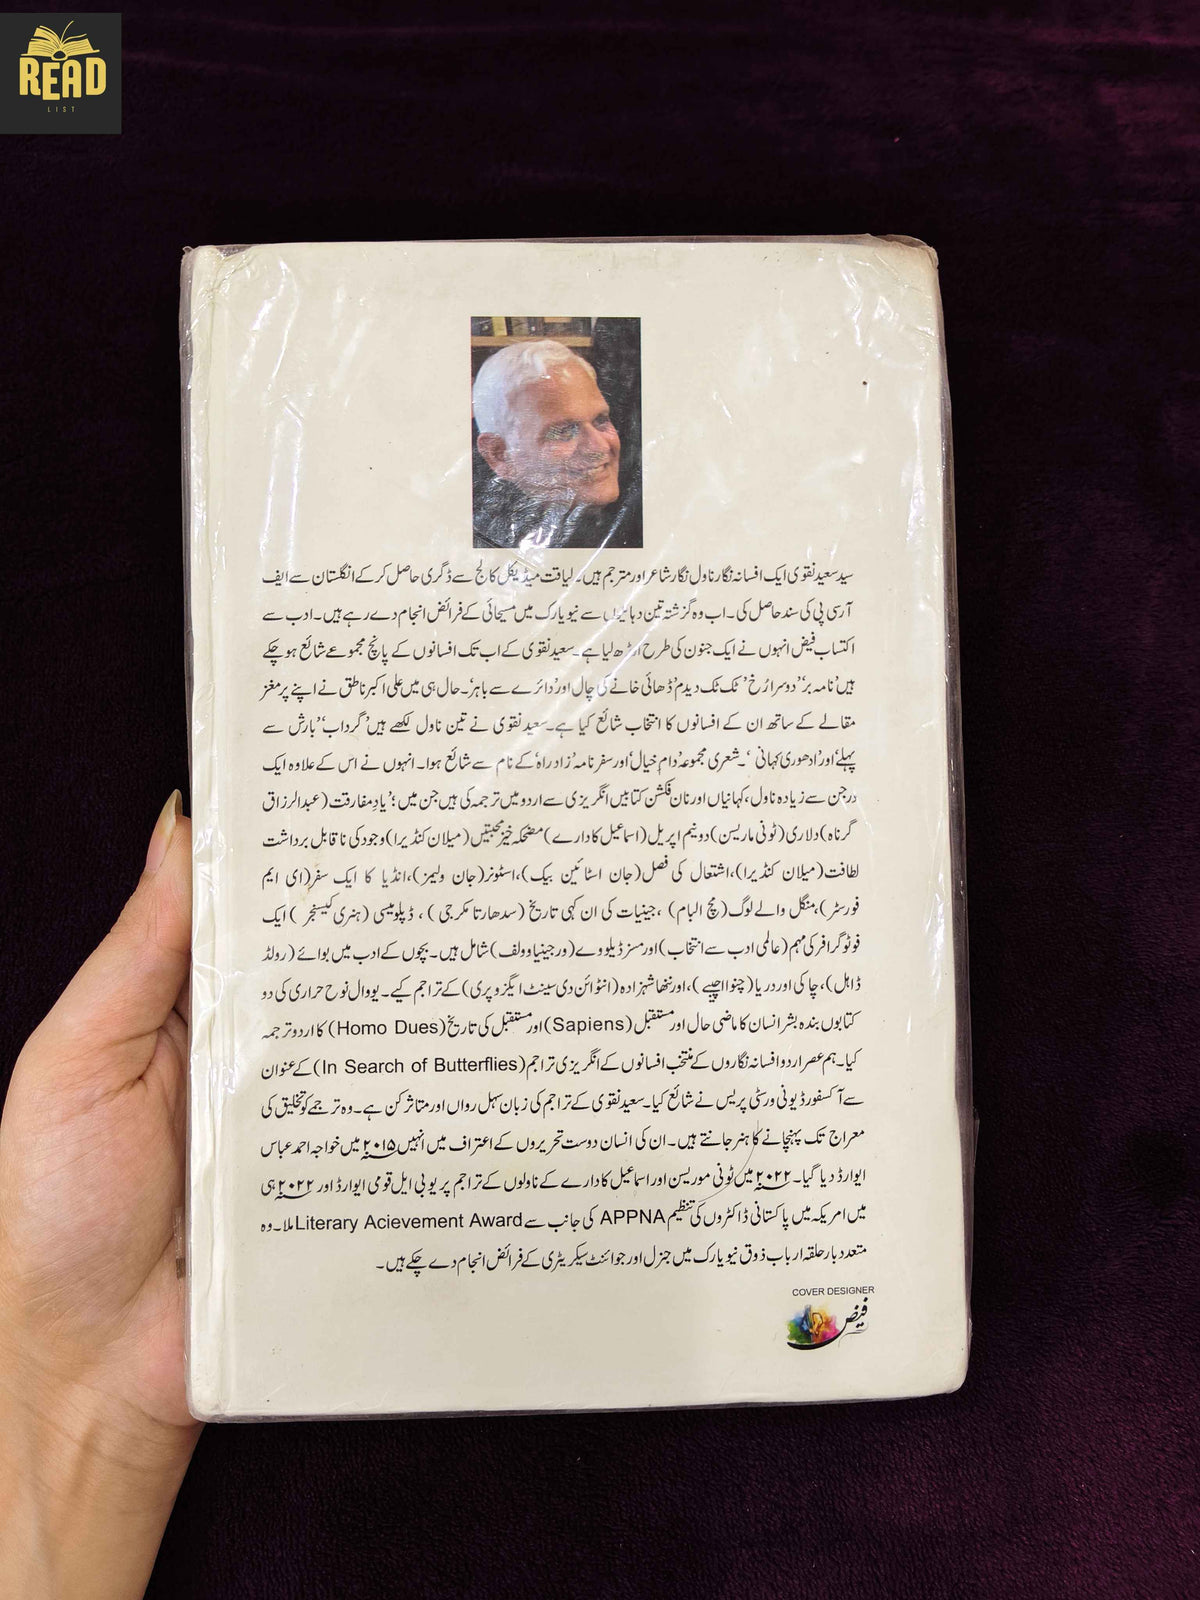 READ
LIST
سید سعید نقوی ایک افسانہ نگار ناول نگار شاعر اور مترجم ہیں۔ لیاقت میڈیکل کالج سے ڈگری حاصل کر کے انگلستان سے ایف
آر سی پی کی سند حاصل کی۔ اب وہ گزشتہ تین دہائیوں سے نیویارک میں مسیحائی کے فرائض انجام دے رہے ہیں۔ ادب سے
اکتساب فیض انہوں نے ایک جنون کی طرح اوڑھ لیا ہے۔ سعید نقوی کے اب تک افسانوں کے پانچ مجموعے شائع ہو چکے
ہیں 'نامہ بر' 'دوسرا رُخ' 'ٹک ٹک دیدم' ڈھائی خانے کی چال اور 'دائرے سے باہر'۔ حال ہی میں علی اکبر ناطق نے اپنے پر مغز
مقالے کے ساتھ ان کے افسانوں کا انتخاب شائع کیا ہے۔ سعید نقوی نے تین ناول لکھے ہیں 'گرداب' 'بارش سے
پہلے' اور 'ادھوری کہانی'۔ شعری مجموعہ 'دام خیال' اور سفر نامہ 'زاد راہ' کے نام سے شائع ہوا۔ انہوں نے اس کے علاوہ ایک
درجن سے زیادہ ناول، کہانیاں اور نان فکشن کتابیں انگریزی سے اردو میں ترجمہ کی ہیں جن میں؛ 'یادِ مفارقت (عبدالرزاق
گرناہ) دلاری (ٹونی ماریسن) دو نیم اپریل (اسماعیل کادارے) مضحکہ خیز محبتیں (میلان کنڈیرا) وجود کی ناقابل برداشت
لطافت (میلان کنڈیرا)، اشتعال کی فصل (جان اسٹائین بیک)، اسٹونر (جان ولیمز)، انڈیا کا ایک سفر (ای ایم
فورسٹر)، منگل والے لوگ (مچ البام) ، جینیات کی ان کہی تاریخ (سدھارتا مکرجی) ، ڈپلومیسی (ہنری کیسنجر) ایک
فوٹوگرافر کی مہم (عالمی ادب سے انتخاب) اور مسز ڈیلووے (ورجینیا وولف) شامل ہیں۔ بچوں کے ادب میں بوائے (رولڈ
ڈاہل)، چا کی اور دریا (چنوا اچیبے)، اور ننھا شہزادہ (انٹوائن دی سینٹ ایگزوپری) کے تراجم کیے۔ یووال نوح حراری کی دو
کتابوں بندہ بشر انسان کا ماضی حال اور مستقبل (Sapiens) اور مستقبل کی تاریخ (Homo Dues) کا اردو ترجمہ
کیا۔ ہم عصر اردو افسانہ نگاروں کے منتخب افسانوں کے انگریزی تراجم (In Search of Butterflies) کے عنوان
سے آکسفورڈ یونی ورسٹی پریس نے شائع کیا۔ سعید نقوی کے تراجم کی زبان سہل رواں اور متاثر کن ہے۔ وہ ترجمے کو تخلیق کی
معراج تک پہنچانے کا ہنر جانتے ہیں۔ ان کی انسان دوست تحریروں کے اعتراف میں انہیں ۲۰۱۵ میں خواجہ احمد عباس
ایوارڈ دیا گیا۔ ۲۰۲۲ میں ٹونی موریسن اور اسماعیل کادارے کے ناولوں کے تراجم پر یو بی ایل قومی ایوارڈ اور ۲۰۲۲ ہی
میں امریکہ میں پاکستانی ڈاکٹروں کی تنظیم APPNA کی جانب سے Literary Acievement Award ملا۔ وہ
متعدد بار حلقہ ارباب ذوق نیویارک میں جنرل اور جوائنٹ سیکریٹری کے فرائض انجام دے چکے ہیں۔
COVER DESIGNER
فیض